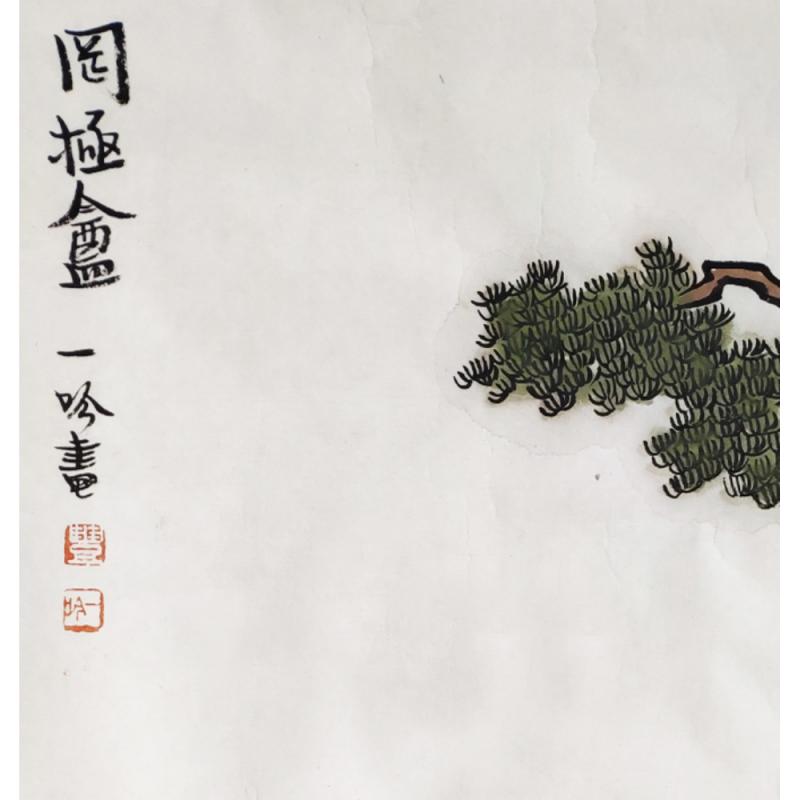 罔極盦
一吟畫
豐
一吟